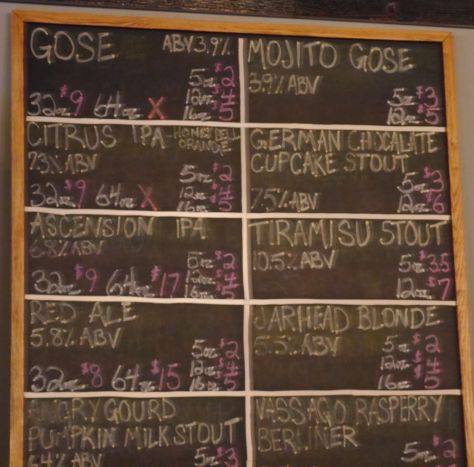 GOSE ABV 3.9%
5oz $2
32oz $9 64oz X 12oz $4
16oz $5
MOJITO GOSE
3.9% ABV
5oz $3
12oz $5
CITRUS IPA HONEYBELL
ORANGE
7.3% ABV
5oz $2
32oz $9 64oz X 12oz $4
16oz $5
GERMAN CHOCALATE
CUPCAKE STOUT
5oz $3
7.5% ABV 12oz $6
ASCENSION IPA
6.8% ABV
5oz $2
32oz $9 64oz $17 12oz $4
16oz $5
TIRAMISU STOUT
10.5% ABV 5oz $3.5
12oz $7
RED ALE
5.8% ABV
5oz $2
32oz $8 64oz $15 12oz $4
16oz $5
JARHEAD BLONDE
5.5% ABV
5oz $2
12oz $4
16oz $5
ANGRY GOURD
PUMPKIN MILK STOUT
6.4% ABV 5oz $2
VASSAGO RASPERRY
BERLINER
5oz $2